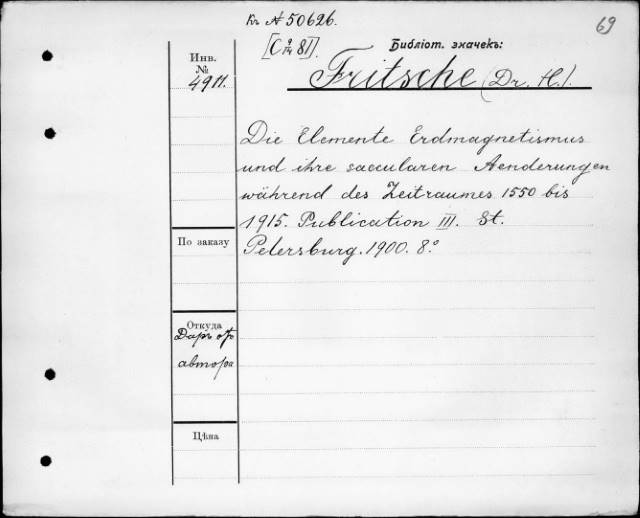 Къ № 50626.
69
[C 9/14 81].
Библіот. значекъ:
Инв.
№
4911.
Fritsche (Dr. H.).
Die Elemente Erdmagnetismus
und ihre saecularen Aenderungen
während des Zeitraumes 1550 bis
1915. Publication III. St.
Petersburg. 1900. 8.°
По заказу
Откуда
Даръ отъ
автора
Цѣна